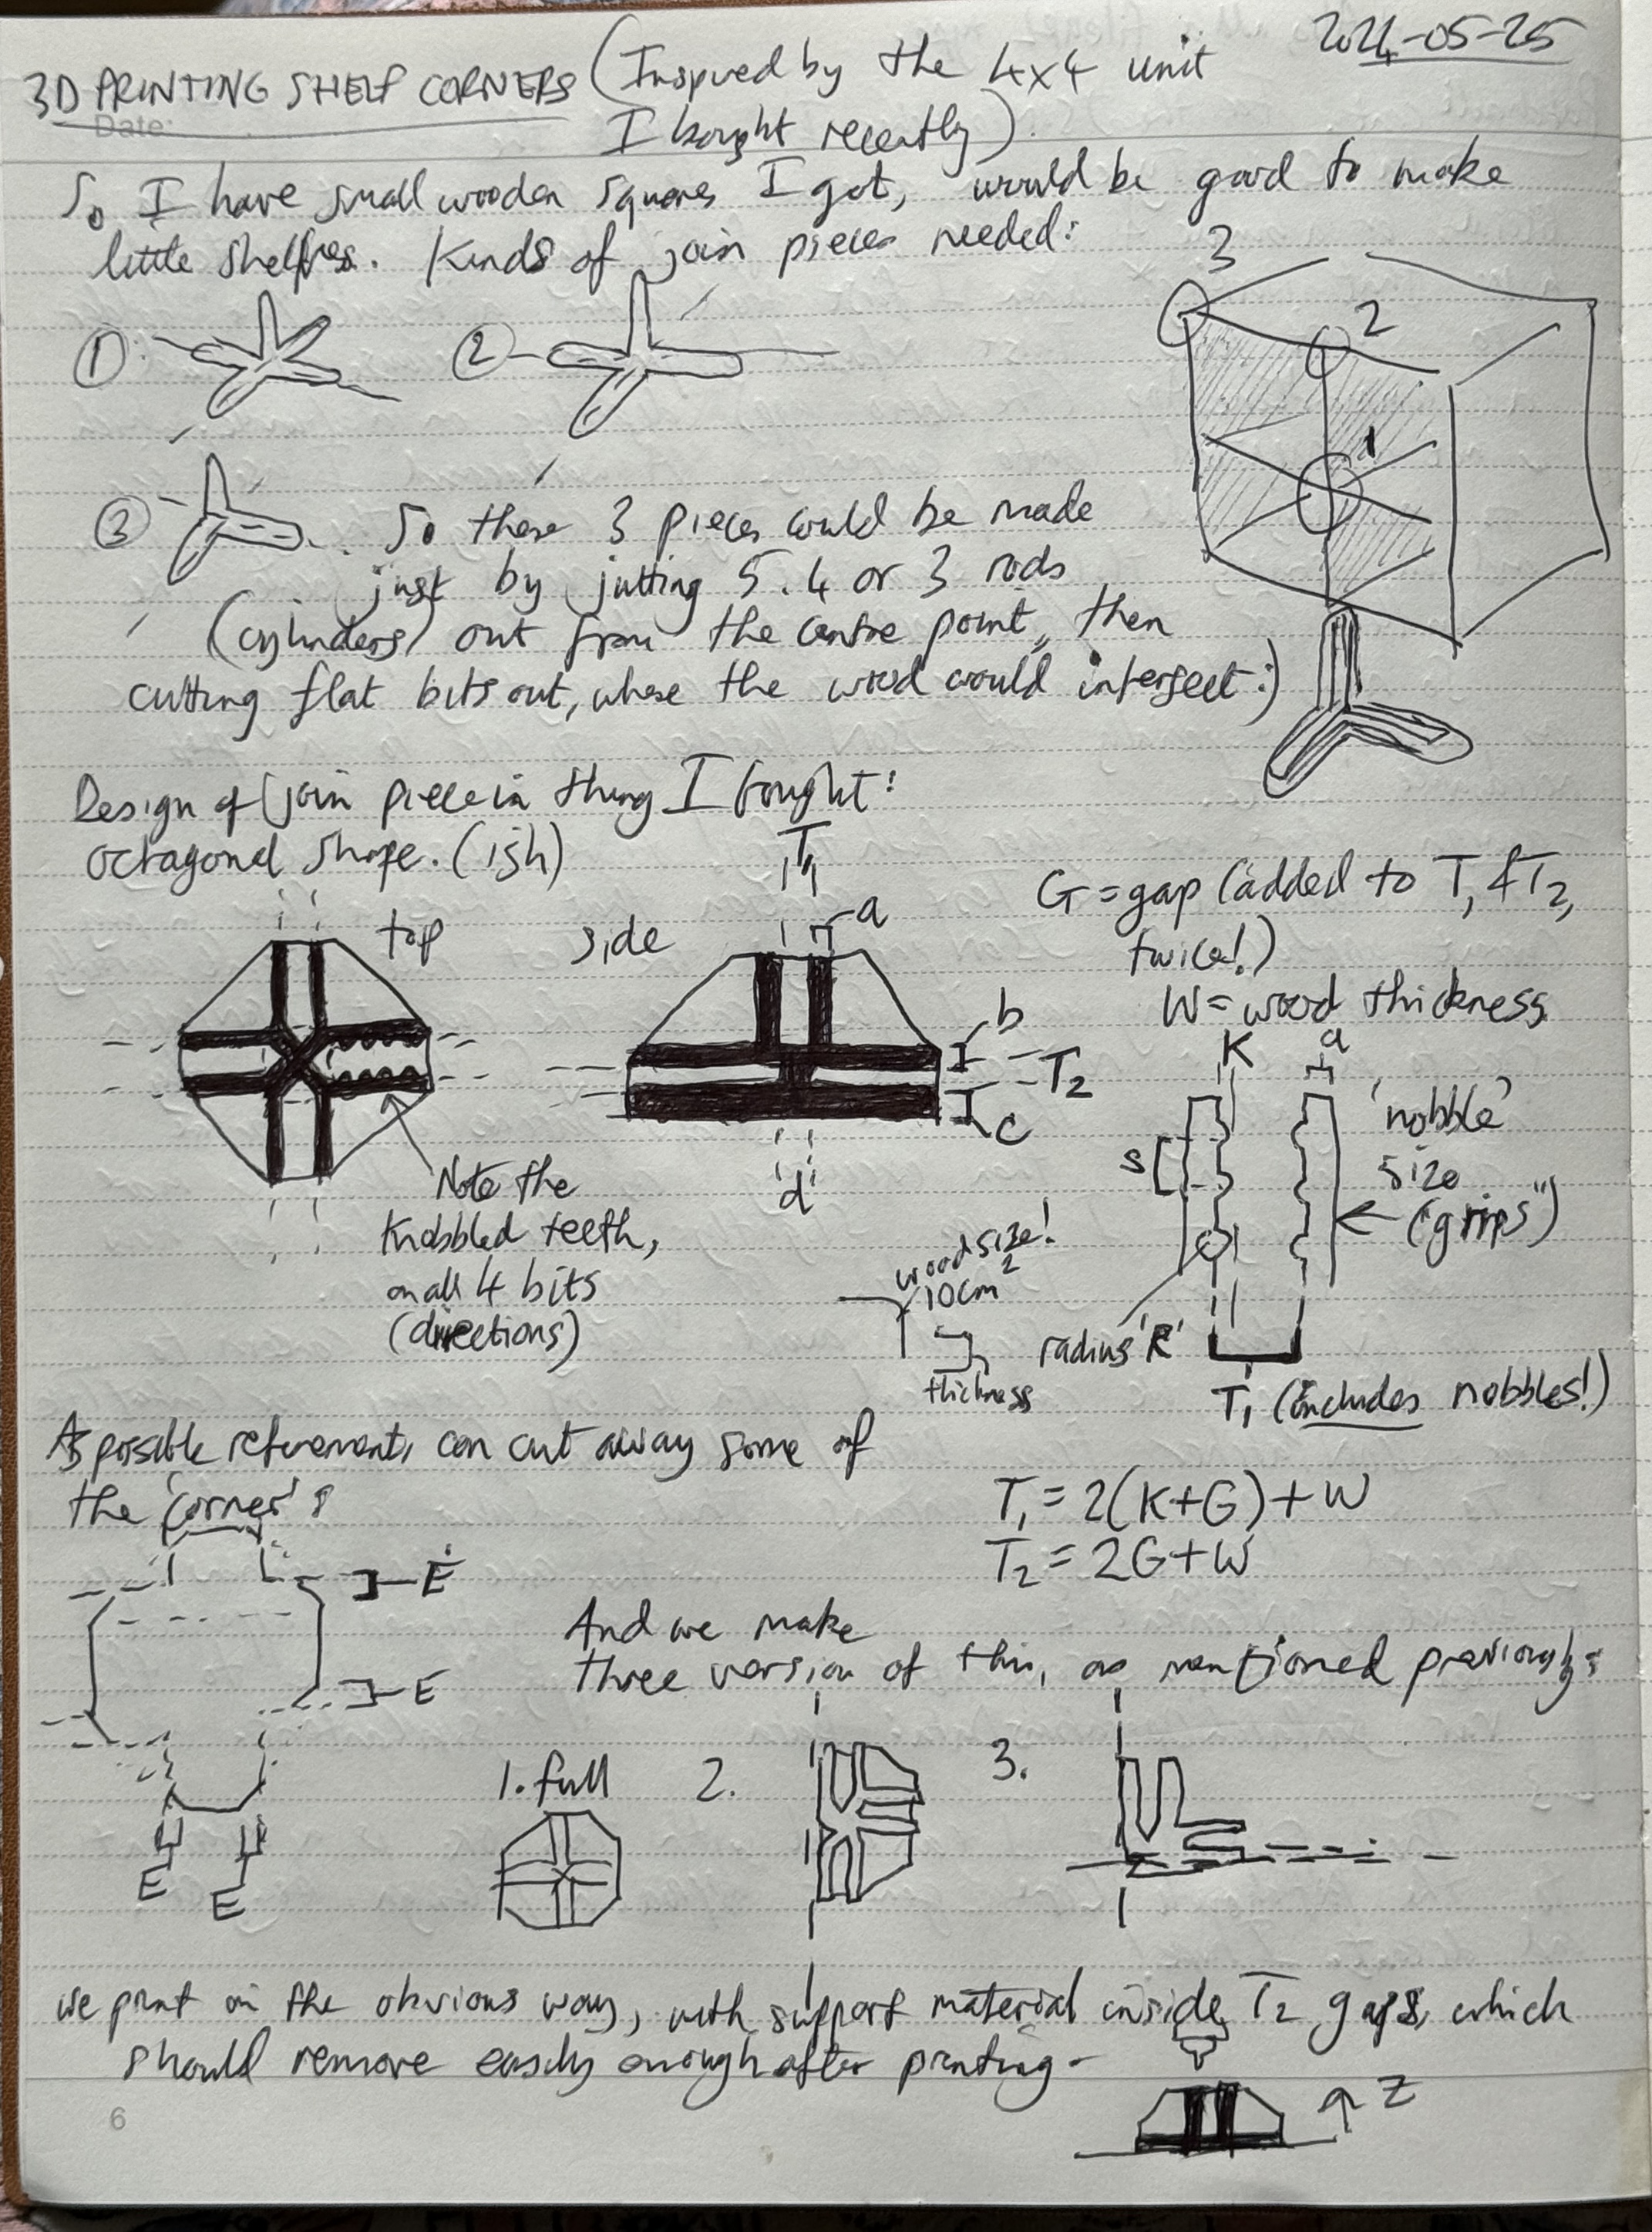 2024-05-25
3D PRINTING SHELF CORNERS (Inspired by the 4x4 unit
I bought recently).
Date:
So I have small wooden squares I got, would be good to make
little shelves. Kinds of join pieces needed:
3
1
2
2
1
3
So these 3 pieces could be made
just by jutting 5, 4 or 3 rods
(cylinders) out from the centre point, then
cutting flat bits out, where the wood would intersect :)
Design of join piece in thing I bought:
octagonal shape. (ish)
T1
a
top
side
G = gap (added to T1 & T2,
twice!)
W = wood thickness
b
T2
c
d
K
a
s
'nobble'
size
("grips")
Note the
knobbled teeth,
on all 4 bits
(directions)
wood size!
10cm2
thickness
radius 'R'
T1 (includes nobbles!)
As possible refinement, can cut away some of
the 'corner's
T1 = 2(K+G)+W
T2 = 2G+W
E
E
E
E
And we make
three version of this, as mentioned previously:
1. full
2.
3.
we print in the obvious way, with support material inside T2 gaps, which
should remove easily enough after printing.
Z
6